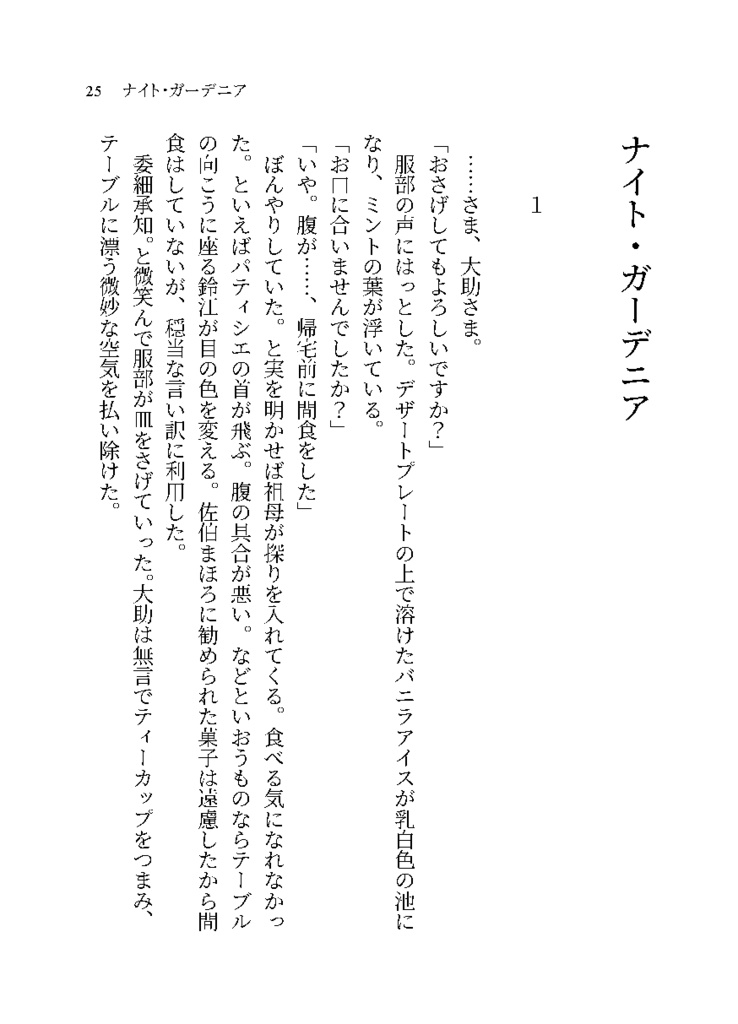 25 ナイト・ガーデニア
ナイト・ガーデニア
1
……さま、大助さま。
「おさげしてもよろしいですか？」
服部の声にはっとした。デザートプレートの上で溶けたバニラアイスが乳白色の池に
なり、ミントの葉が浮いている。
「お口に合いませんでしたか？」
「いや。腹が……、帰宅前に間食をした」
ぼんやりしていた。と実を明かせば祖母が探りを入れてくる。食べる気になれなかっ
た。といえばパティシエの首が飛ぶ。腹の具合が悪い。などといおうものならテーブル
の向こうに座る鈴江が目の色を変える。佐伯まほろに勧められた菓子は遠慮したから間
食はしていないが、穏当な言い訳に利用した。
委細承知。と微笑んで服部が皿をさげていった。大助は無言でティーカップをつまみ、
テーブルに漂う微妙な空気を払い除けた。